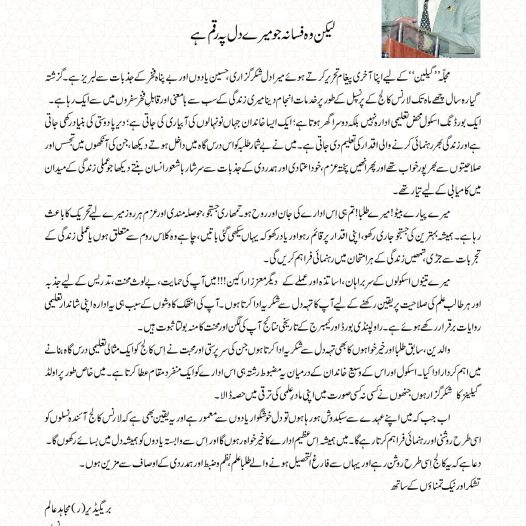 لیکن وہ فسانہ جو میرے دل پہ رقم ہے
مجلّہ ”گیلین“ کے لیے اپنا آخری پیغام تحریر کرتے ہوئے میرا دل شکرگزاری، حسین یادوں اور بے پناہ فخر کے جذبات سے لبریز ہے۔ گزشتہ
گیارہ سال چھے ماہ تک لارنس کالج کے پرنسپل کے طور پر خدمات انجام دینا میری زندگی کے سب سے بامعنی اور قابلِ فخر سفروں میں سے ایک رہا ہے۔
ایک بورڈنگ اسکول محض تعلیمی ادارہ نہیں بلکہ دوسرا گھر ہوتا ہے؛ ایک ایسا خاندان جہاں نونہالوں کی آبیاری کی جاتی ہے؛ دیرپا دوستی کی بنیاد رکھی جاتی
ہے اور زندگی بھر رہنمائی کرنے والی اقدار کی تعلیم دی جاتی ہے۔ میں نے بے شمار طلبہ کو اس درس گاہ میں داخل ہوتے دیکھا، جن کی آنکھوں میں تجسس اور
صلاحیتوں سے بھرپور خواب تھے اور پھر انھیں پختہ عزم، خود اعتمادی اور ہمدردی کے جذبات سے سرشار باشعور انسان بنتے دیکھا جو عملی زندگی کے میدان
میں کامیابی کے لیے تیار تھے۔
میرے پیارے بیٹو! میرے طلبا! تم ہی اس ادارے کی جان اور روح ہو۔ تمھاری جستجو، حوصلہ مندی اور عزم ہر روز میرے لیے تحریک کا باعث
رہا ہے۔ ہمیشہ بہترین کی جستجو جاری رکھو، اپنی اقدار پر قائم رہو اور یاد رکھو کہ یہاں سیکھی گئی باتیں، چاہے وہ کلاس روم سے متعلق ہوں یا عملی زندگی کے
تجربات سے جڑی، تمھیں زندگی کے ہر امتحان میں رہنمائی فراہم کریں گی۔
میرے تینوں اسکولوں کے سربراہان، اساتذہ اور عملے کے دیگر معزز اراکین!!! میں آپ کی حمایت، بے لوث محنت، تدریس کے لیے جذبہ
اور ہر طالب علم کی صلاحیت پر یقین رکھنے کے لیے آپ کا تہہ دل سے شکریہ ادا کرتا ہوں۔ آپ کی انتھک کاوشوں کے سبب ہی یہ ادارہ اپنی شاندار تعلیمی
روایات برقرار رکھے ہوئے ہے۔ راولپنڈی بورڈ اور کیمبرج کے تاریخی نتائج آپ کی لگن اور محنت کا منہ بولتا ثبوت ہیں۔
والدین، سابق طلبا اور خیر خواہوں کا بھی تہہ دل سے شکریہ ادا کرتا ہوں جن کی سرپرستی اور محبت نے اس کالج کو ایک مثالی تعلیمی درس گاہ بنانے
میں اہم کردار ادا کیا۔ اسکول اور اس کے وسیع خاندان کے درمیان یہ مضبوط رشتہ ہی اس ادارے کو ایک منفرد مقام عطا کرتا ہے۔ میں خاص طور پر اولڈ
گیلینز کا شکر گزار ہوں جنھوں نے کسی نہ کسی صورت میں اپنی مادرِ علمی کی ترقی میں حصہ ڈالا۔
اب جب کہ میں اپنے عہدے سے سبکدوش ہو رہا ہوں تو دل خوشگوار یادوں سے معمور ہے اور یہ یقین بھی ہے کہ لارنس کالج آئندہ نسلوں کو
اسی طرح روشنی اور رہنمائی فراہم کرتا رہے گا۔ میں ہمیشہ اس عظیم ادارے کا خیر خواہ رہوں گا اور اس سے وابستہ یادوں کو ہمیشہ دل میں بسائے رکھوں گا۔
دعا ہے کہ یہ کالج اسی طرح روشن رہے اور یہاں سے فارغ التحصیل ہونے والے طلبا علم، نظم و ضبط اور ہمدردی کے اوصاف سے مزین ہوں۔
تشکر اور نیک تمناؤں کے ساتھ
بریگیڈیر (ر) مجاہد عالم